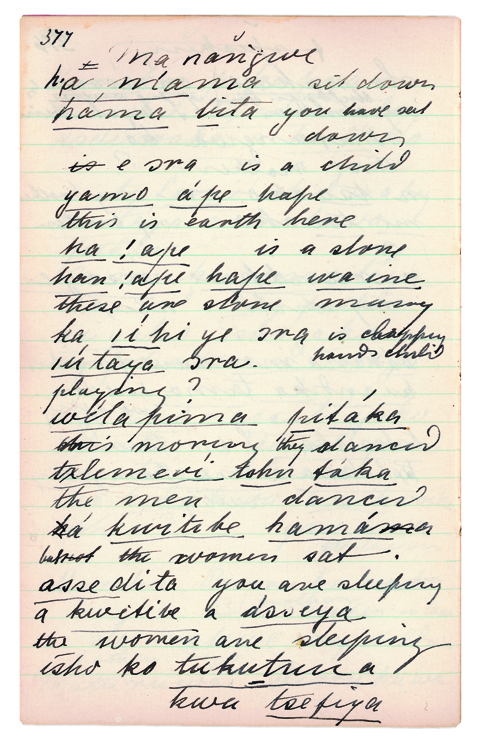 377
Ma nangwe
ha mama sit down
hama bita you have sat
down
is e sra is a child
yamo ápe hape
this is earth here
ha !ape is a stone
han !ape hape waine
these are stone many
ka ıí hi ye sra is clapping
ıútaya sra. hands child
playing?
wela pima pitáka
this morning they danced
tzlemeví tshu táka
the men danced
há kwitibe hamáma
but not the women sat.
asse dita you are sleeping
a kwitibe a ásveya
the women are sleeping
isho ko tukutrua a
kwa tsefiya